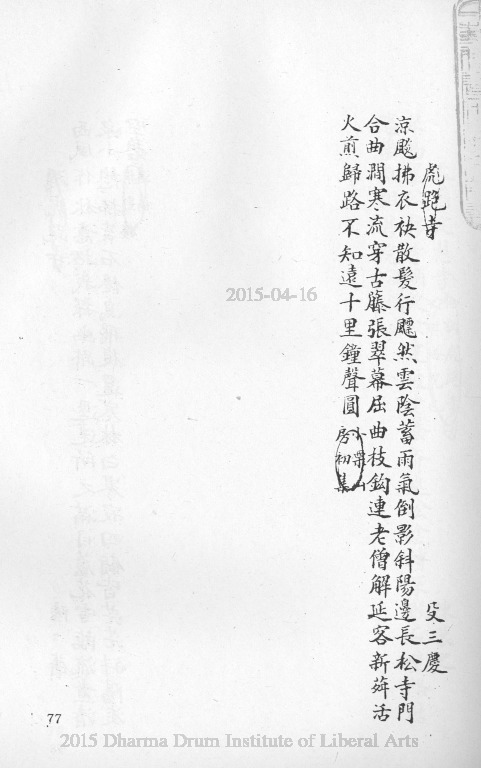 虎跑寺
殳三慶
涼飈拂衣袂散髮行飄然雲陰蓄雨氣倒影斜陽邊長松寺門
合曲澗寒流穿古藤張翠幕屈曲枝鈎連老僧解延客新荈活
火煎歸路不知遠十里鐘聲圓
房初集
77
2015-04-16
2015 Dharma Drum Institute of Liberal Arts